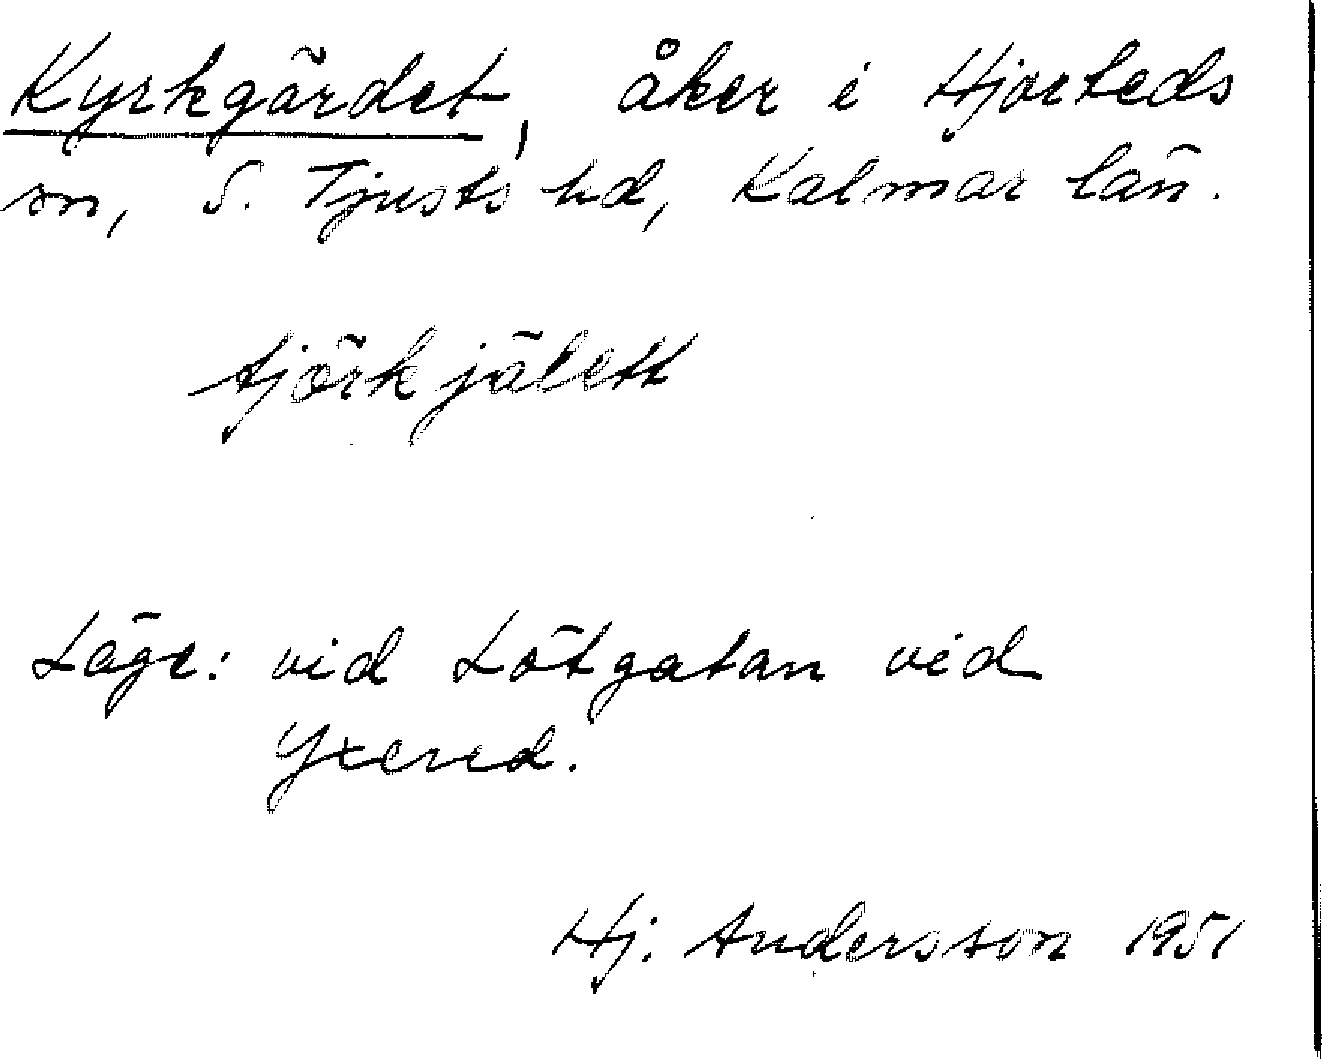 Kyrkgärdet, åker i Hjorteds
sn, S. Tjusts hd, Kalmar län.
tjörkjälett
Läge: vid Lötgatan vid
Yxered.
Hj. Andersson 1951